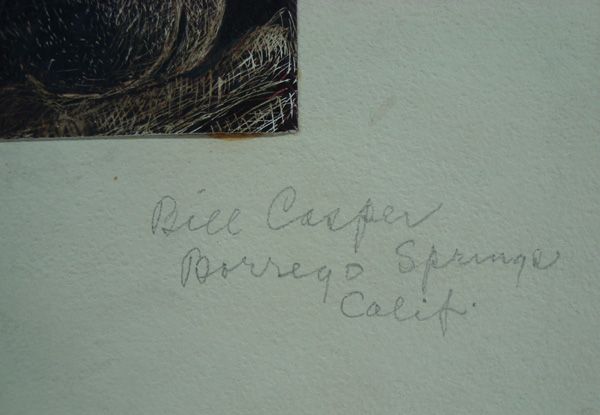 Bill Casper
Borrego Springs
Calif.